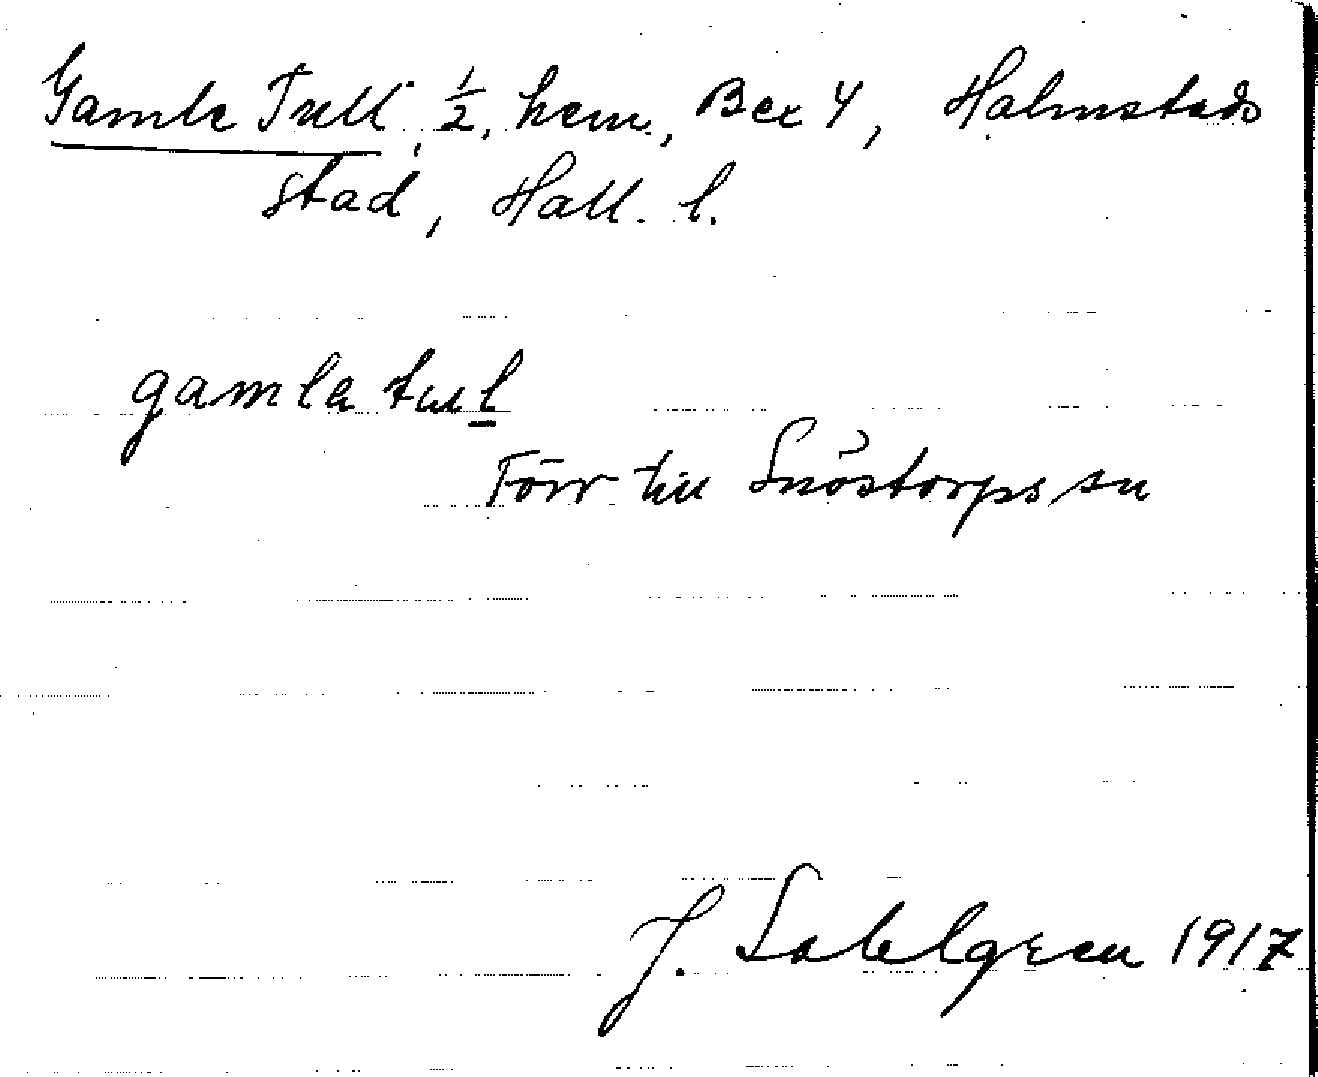 Gamla Tull, 1/2, hem., Bex 4, Halmstads
stad, Hall. l.
gamla tul
Förr till Snöstorps sn
J. Sahlgren 1917